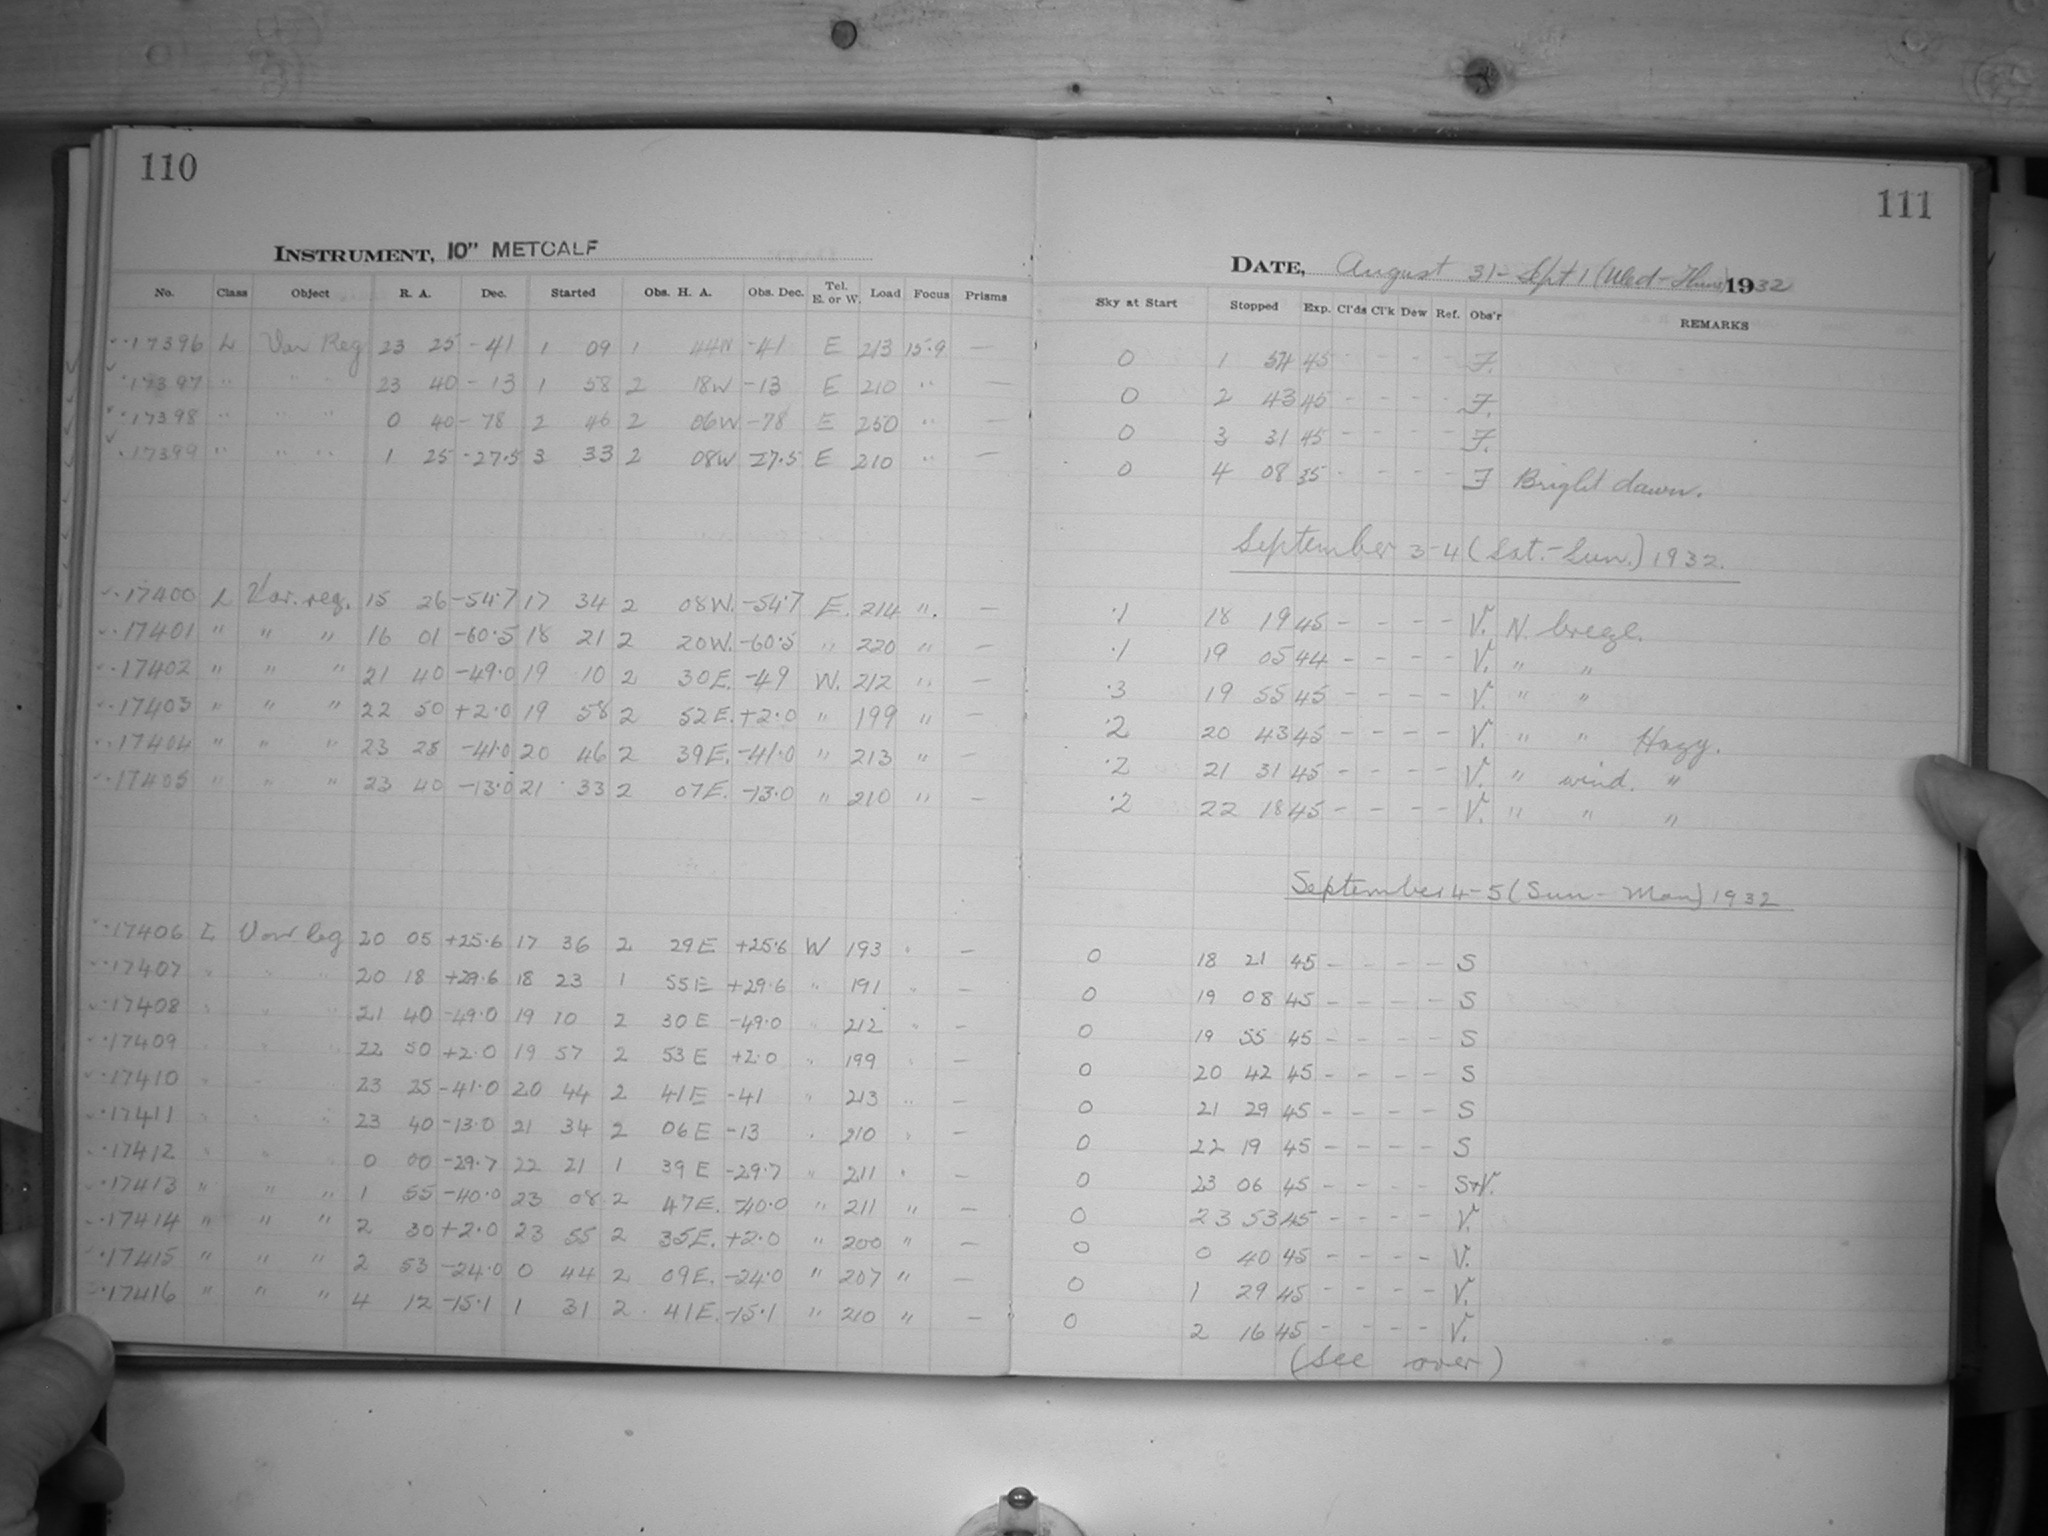 110
INSTRUMENT, 10" METCALF
No. Class Object R. A. Dec. Started Obs. H. A. Obs. Dec. Tel. E. or W. Load Focus Prisms
17396 L Var Reg 23 25 -41 1 09 1 44W -41 E 213 15.9 —
17397 " " " 23 40 -13 1 58 2 18W -13 E 210 " —
17398 " " " 0 40 -78 2 46 2 06W -78 E 250 " —
17399 " " " 1 25 -27.5 3 33 2 08W 27.5 E 210 " —
17400 L Var. reg. 15 26 -54.7 17 34 2 08W. -54.7 E. 214 ". —
17401 " " " 16 01 -60.5 18 21 2 20W. -60.5 " 220 " —
17402 " " " 21 40 -49.0 19 10 2 30E. -49 W. 212 " —
17403 " " " 22 50 +2.0 19 58 2 52E. +2.0 " 199 " —
17404 " " " 23 25 -41.0 20 46 2 39E. -41.0 " 213 " —
17405 " " " 23 40 -13.0 21 33 2 07E. -13.0 " 210 " —
17406 L Var Reg 20 05 +25.6 17 36 2 29E +25.6 W 193 " —
17407 " " " 20 18 +29.6 18 23 1 55E +29.6 " 191 " —
17408 " " " 21 40 -49.0 19 10 2 30E -49.0 " 212 " —
17409 " " " 22 50 +2.0 19 57 2 53E +2.0 " 199 " —
17410 " " " 23 25 -41.0 20 44 2 41E -41 " 213 " —
17411 " " " 23 40 -13.0 21 34 2 06E -13 " 210 " —
17412 " " " 0 00 -29.7 22 21 1 39E -29.7 " 211 " —
17413 " " " 1 55 -40.0 23 08 2 47E. -40.0 " 211 " —
17414 " " " 2 30 +2.0 23 55 2 35E. +2.0 " 200 " —
17415 " " " 2 53 -24.0 0 44 2 09E. -24.0 " 207 " —
17416 " " " 4 12 -15.1 1 31 2 41E. -15.1 " 210 " —
111
DATE, August 31 - Sept 1 (Wed - Thurs) 1932
Sky at Start Stopped Exp. Cl'ds Cl'k Dew Ref. Obs'r REMARKS
0 1 54 45 - - - - F.
0 2 43 45 - - - - F.
0 3 31 45 - - - - F.
0 4 08 35 - - - - F Bright dawn.
September 3-4 (Sat.-Sun.) 1932.
.1 18 19 45 - - - - V. N. breeze.
.1 19 05 44 - - - - V. " "
.3 19 55 45 - - - - V. " "
.2 20 43 45 - - - - V. " " Hazy.
.2 21 31 45 - - - - V. " wind. "
.2 22 18 45 - - - - V. " " "
September 4-5 (Sun - Mon) 1932
0 18 21 45 - - - - S
0 19 08 45 - - - - S
0 19 55 45 - - - - S
0 20 42 45 - - - - S
0 21 29 45 - - - - S
0 22 19 45 - - - - S
0 23 06 45 - - - - S+V.
0 23 53 45 - - - - V.
0 0 40 45 - - - - V.
0 1 29 45 - - - - V.
0 2 16 45 - - - - V.
(See over)